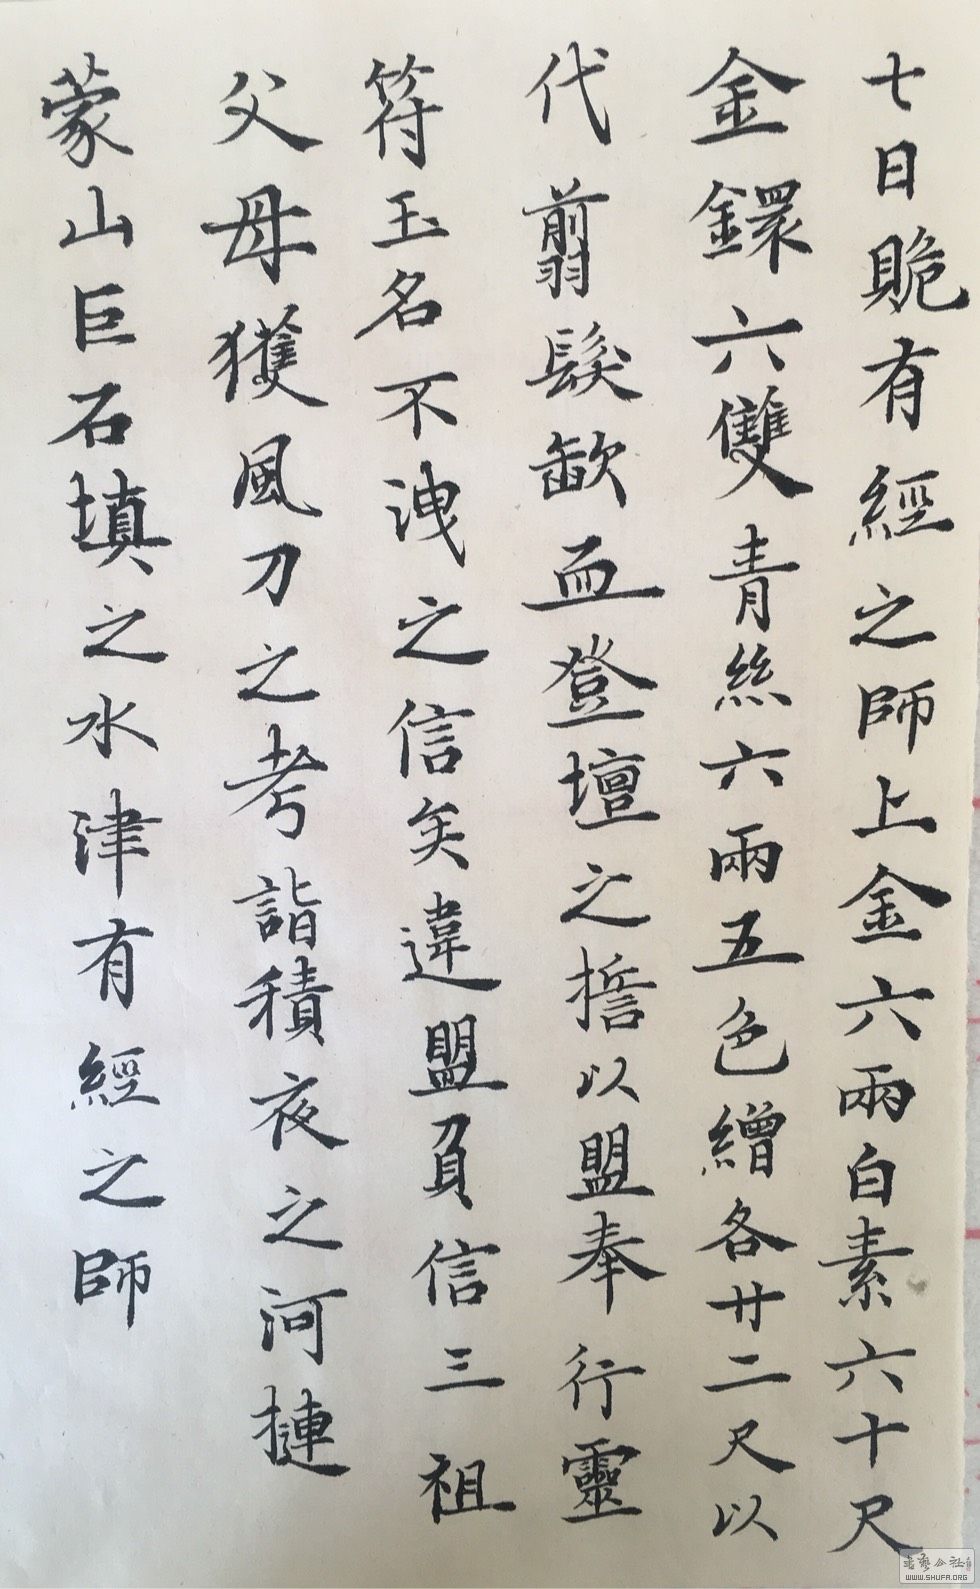 七日贍有經之師上金六兩白素六十尺
金鐶六雙青絲六兩五色繒各廿二尺以
代翦髮歃血登壇之誓以盟奉行靈
符玉名不洩之信矣違盟負信三祖
父母獲風刀之考詣積夜之河摙
蒙山巨石填之水津有經之師
WWW.SHUFA.ORG